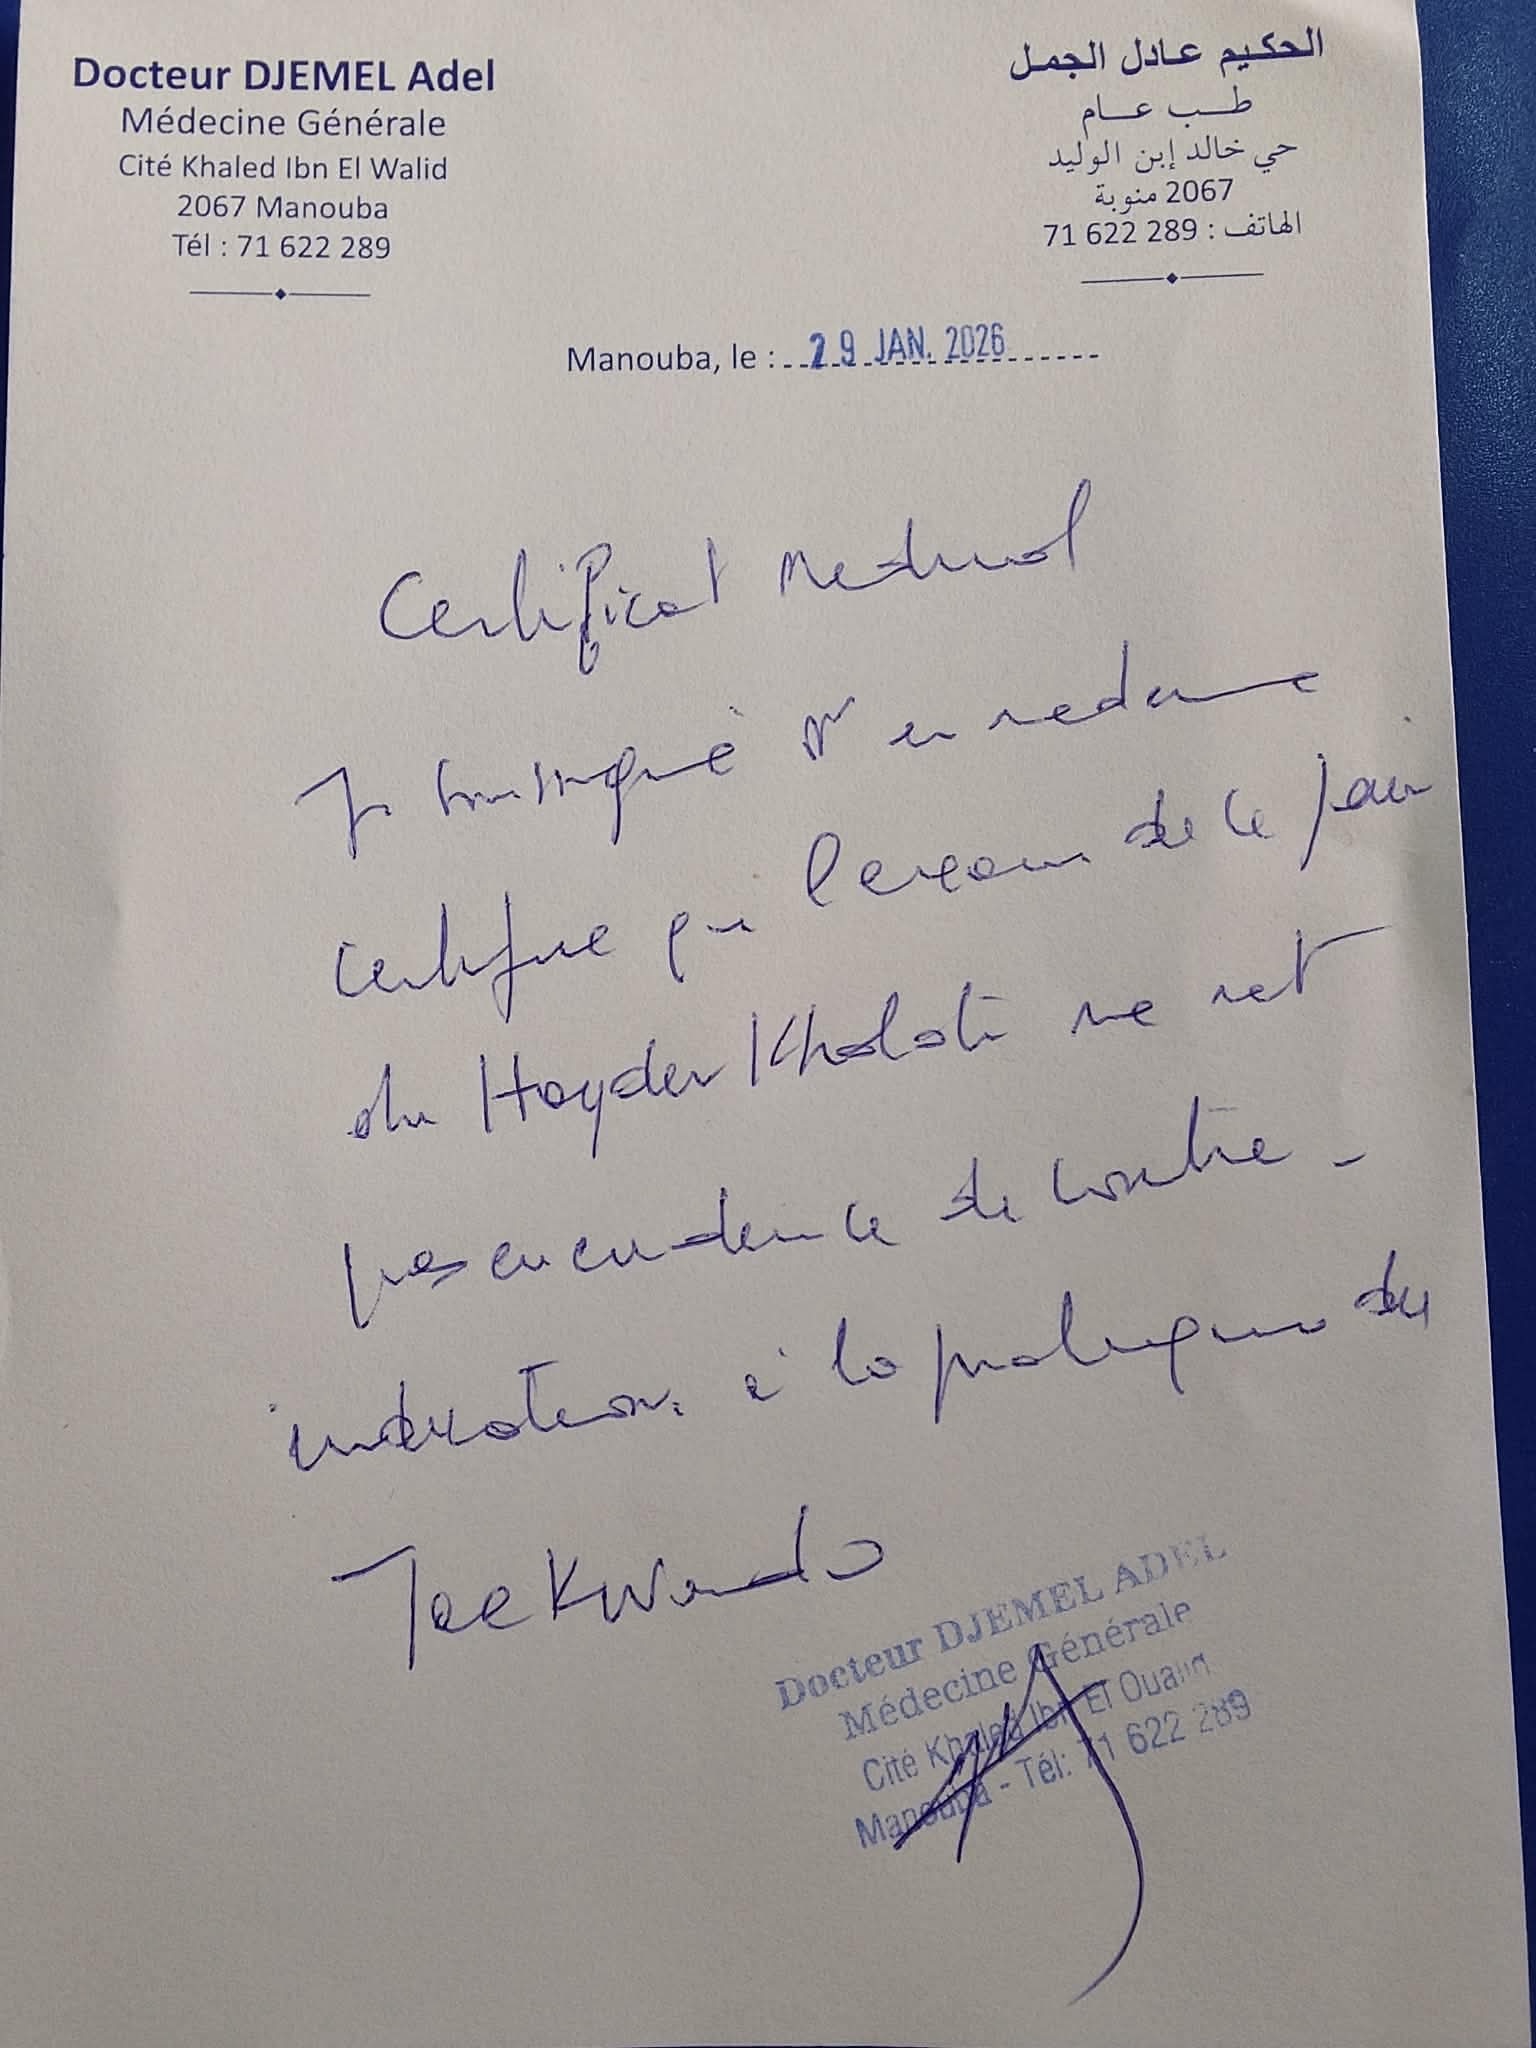 Docteur DJEMEL Adel
Médecine Générale
Cité Khaled Ibn El Walid
2067 Manouba
Tél : 71 622 289
الحكيم عادل الجمل
طب عام
حي خالد إبن الوليد
2067 منوبة
الهاتف : 289 622 71
Manouba, le : 29 JAN. 2026
Certificat Medical
Je soussigné Dr en medecine
certifie que l'examen de ce jour
du Hayder Kholoti ne met
pas en evidence de contre-
indication à la pratique du
Taekwondo
Docteur DJEMEL ADEL
Médecine Générale
Cité Khaled Ibn El Oualid
Manouba - Tél: 71 622 289